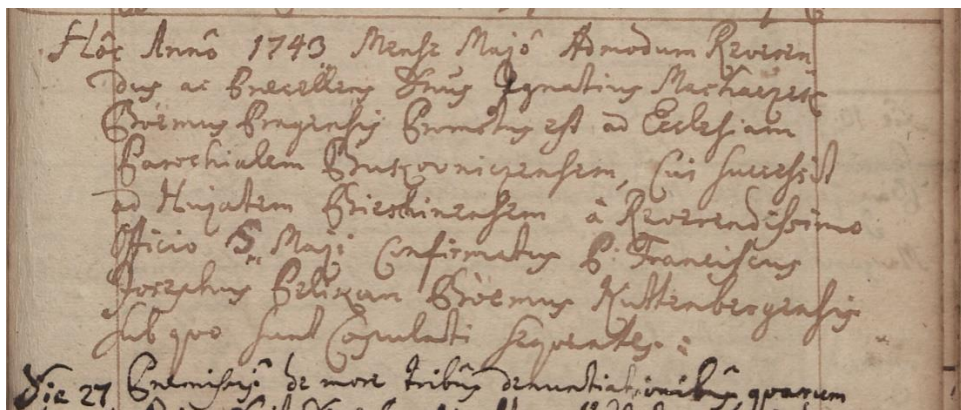 Hôc Annô 1743 Mense Majô Admodum Reveren
dus ac Excellens Dnus Ignatius Machaczek
Boëmus Pragensis Promotus est ad Ecclesiam
Parochialem Bukovniczensem, Cui successit
ad Hujatem Brzeskinensem à Reverendissimo
Officio 5 Maji Confirmatus P. Franciscus
Josephus Pelikan Boëmus Kuttenbergensis
sub quo sunt Copulati sequentes:
Die 27 Praemissis de more tribûs denuntiationibûs quarum